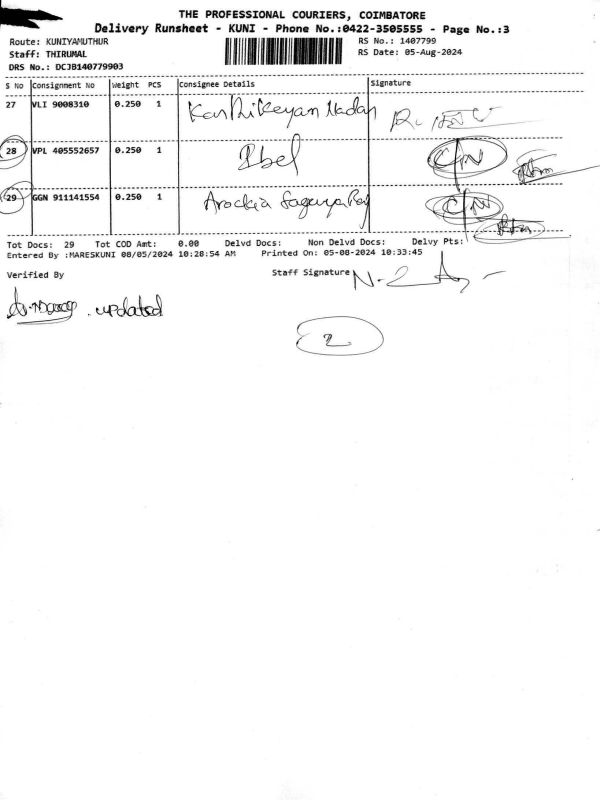 THE PROFESSIONAL COURIERS, COIMBATORE
Delivery Runsheet - KUNI - Phone No.:0422-3505555 - Page No.:3
Route: KUNIYAMUTHUR RS No.: 1407799
Staff: THIRUMAL RS Date: 05-Aug-2024
DRS No.: DCJB140779903
S No Consignment No Weight PCS Consignee Details Signature
27 VLI 9008310 0.250 1 Karthikeyam Nadar
28 VPL 405552657 0.250 1 Ibel C/N
29 GGN 911141554 0.250 1 Arockia Sagaya Raj C/N
Tot Docs: 29 Tot COD Amt: 0.00 Delvd Docs: Non Delvd Docs: Delvy Pts:
Entered By :MARESKUNI 08/05/2024 10:28:54 AM Printed On: 05-08-2024 10:33:45
Verified By Staff Signature
updated
2